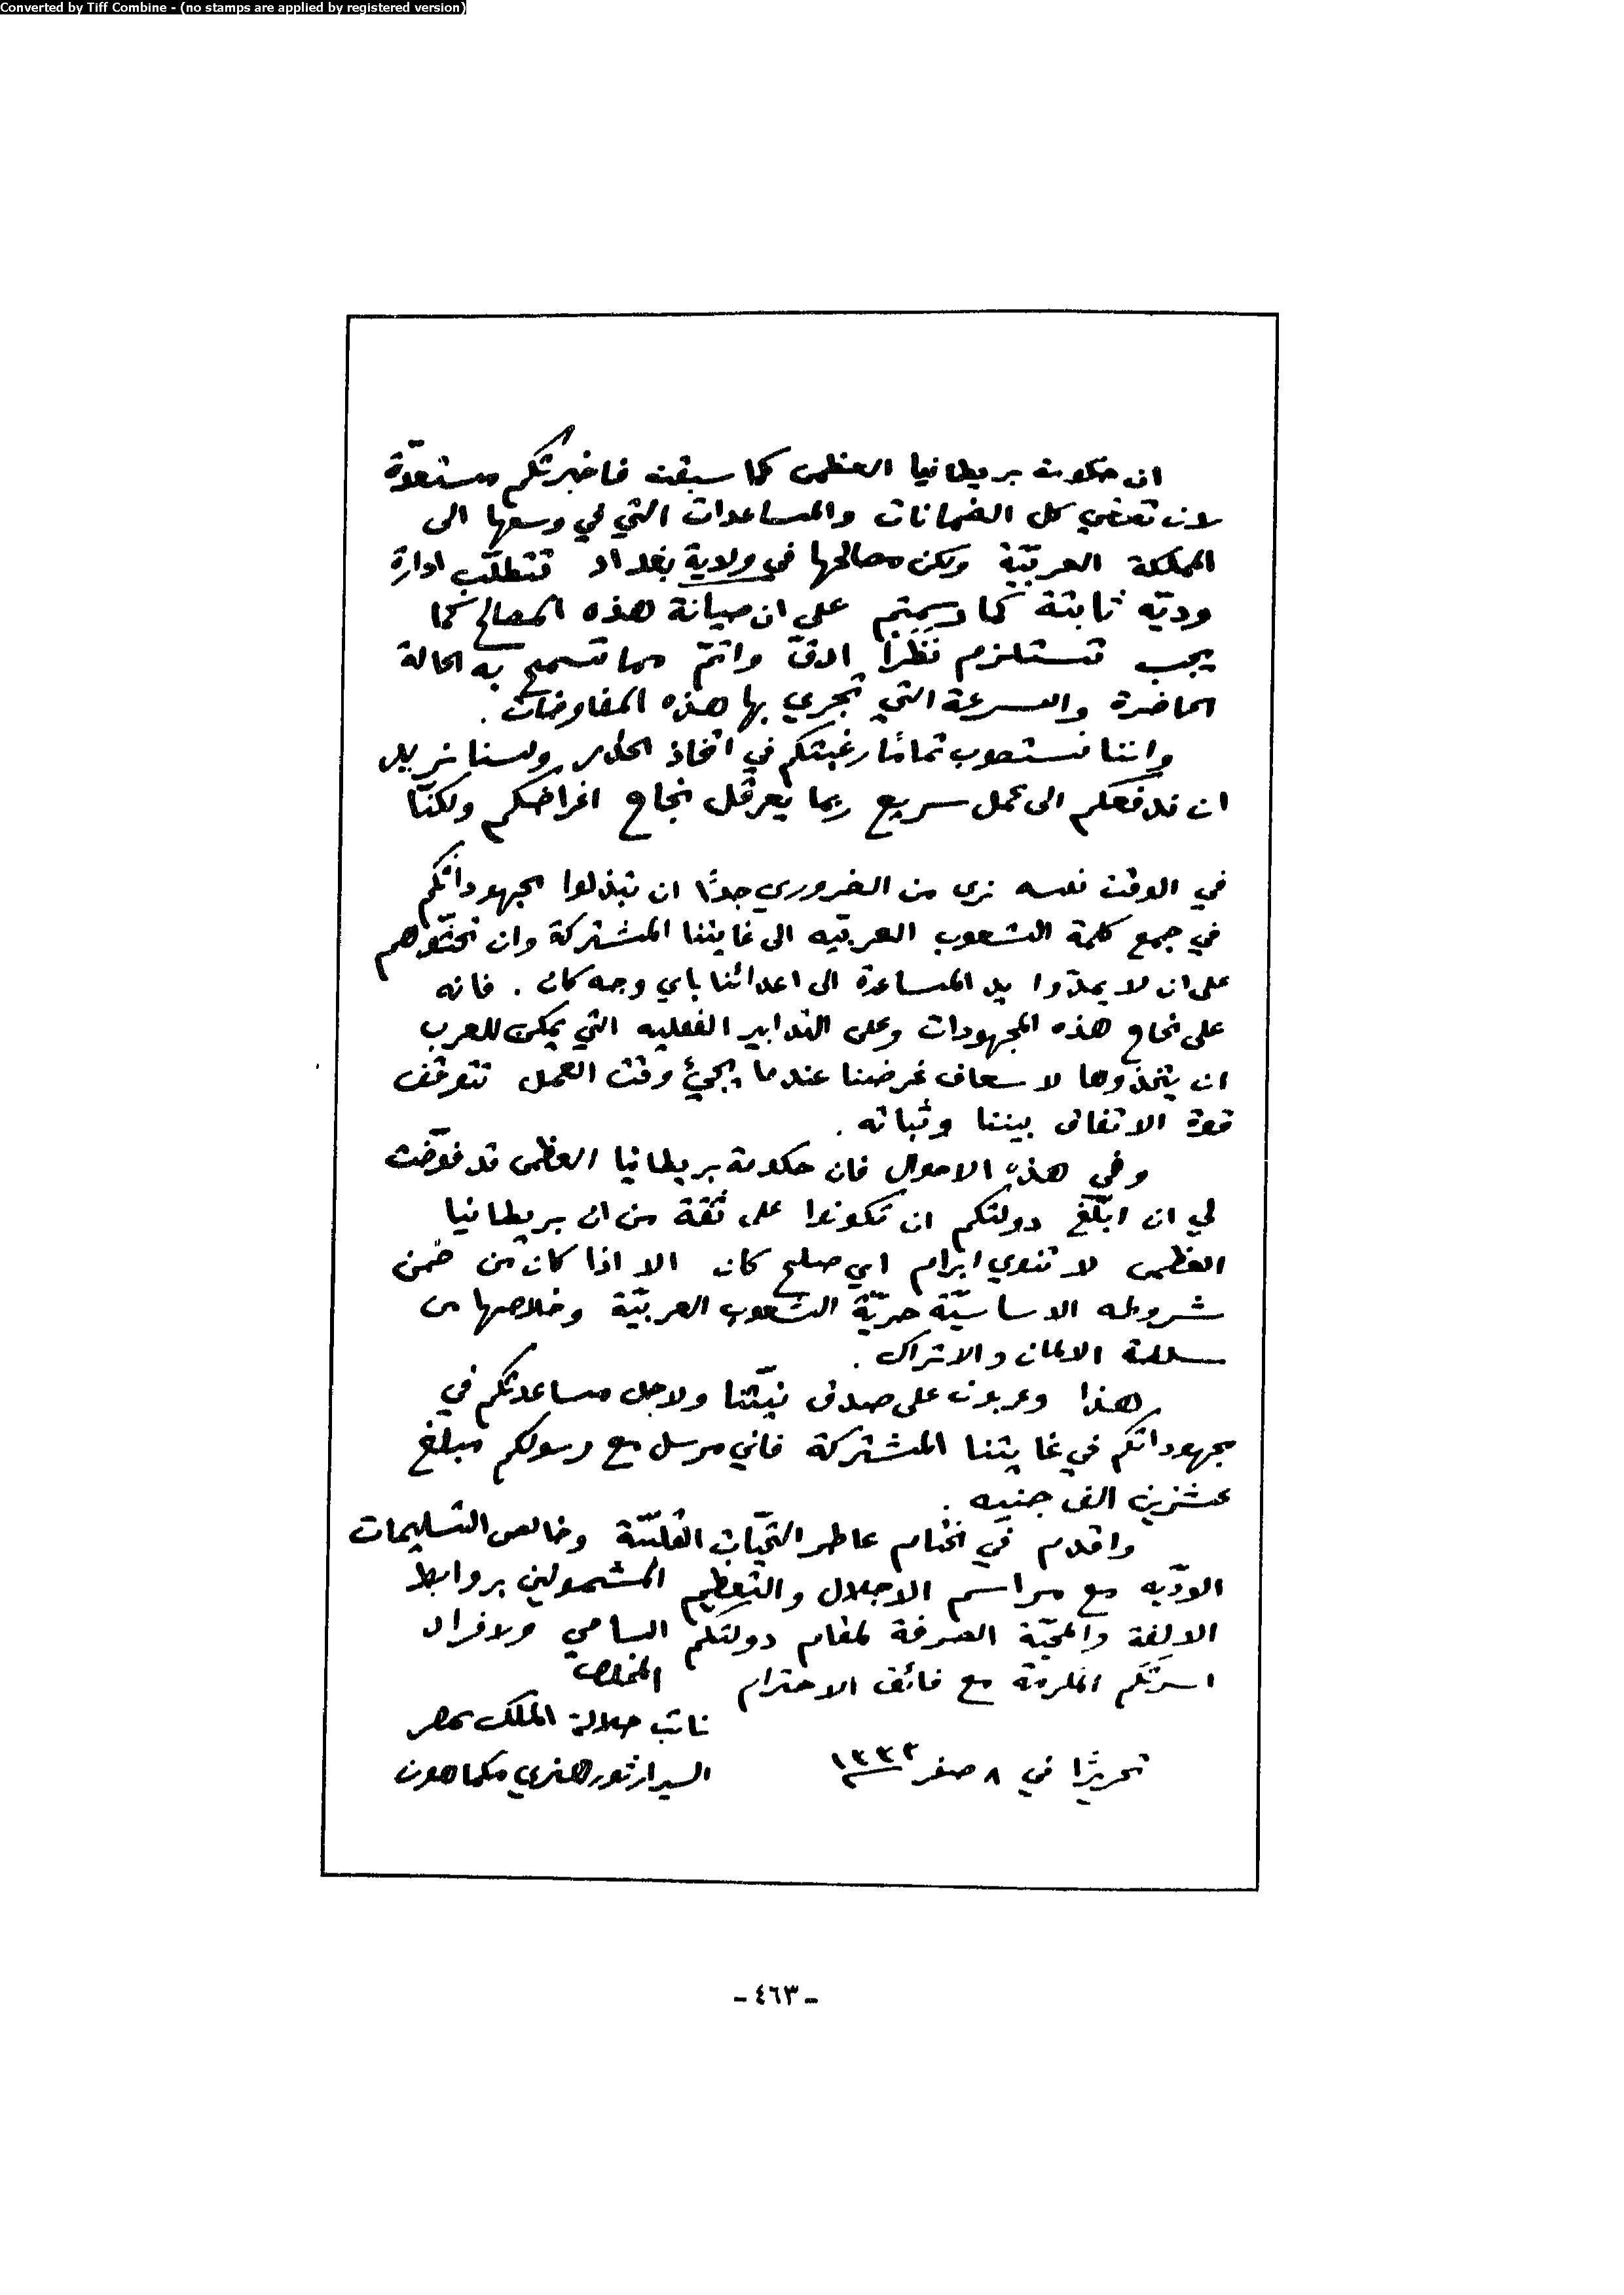 Converted by Tiff Combine - (no stamps are applied by registered version)
ان حكومة بريطانيا العظمى كما سبقت فاخبرتكم مستعدّة
لان تعطي كل الضمانات والمساعدات التي في وسعها الى
المملكة العربيّة ولكن مصالحها في ولاية بغداد تتطلّب ادارة
وديّه ثابتة كما رسمتم على ان صيانة هذه المصالح كما
يجب تستلزم نظراً ادقّ واتمّ مما تسمح به الحالة
الحاضرة والسرعة التي تجري بها هذه المفاوضات .
واننا نستصوب تمامًا رغبتكم في اتخاذ الحذر ولسنا نريد
ان ندفعكم الى عمل سريع ربما يعرقل نجاح اغراضكم ولكنّا
في الوقت نفسه نرى من الضروري جدًا ان تبذلوا مجهوداتكم
في جمع كلمة الشعوب العربيّه الى غايتنا المشتركة وان تحثّوهم
على ان لا يمدّوا يد المساعدة الى اعدائنا باي وجه كان . فانه
على نجاح هذه المجهودات وعلى التدابير الفعليه التي يمكن للعرب
ان يتخذوها لاسعاف غرضنا عندما يجيئ وقت العمل تتوقّف
قوة الاتفاق بيننا وثباته .
وفي هذه الاحوال فان حكومة بريطانيا العظمى قد فوّضت
لي ان ابلّغ دولتكم ان تكونوا على ثقة من ان بريطانيا
العظمى لا تنوي ابرام اي صلح كان الا اذا كان من ضمن
شروطه الاساسيّة حريّة الشعوب العربيّة وخلاصها من
سلطة الالمان والاتراك .
هذا وعربون على صدق نيّتنا ولاجل مساعدتكم في
مجهوداتكم في غايتنا المشتركة فاني مرسل مع رسولكم مبلغ
عشرين الف جنيه .
واقدم في الختام عاطر التحيّات القلبيّة وخالص التسليمات
الودّيه مع مراسم الاجلال والتعظيم المشمولين بروابط
الالفة والمحبّة الصرفة لمقام دولتكم السامي ولافراد
اسرتكم المكرمة مع فائق الاحترام المخلص
نائب جلالة الملك بمصر
تحريرًا في ٨ صفر ١٣٣٤ السير ارثور هنري مكماهون
- ٤٦٣ -